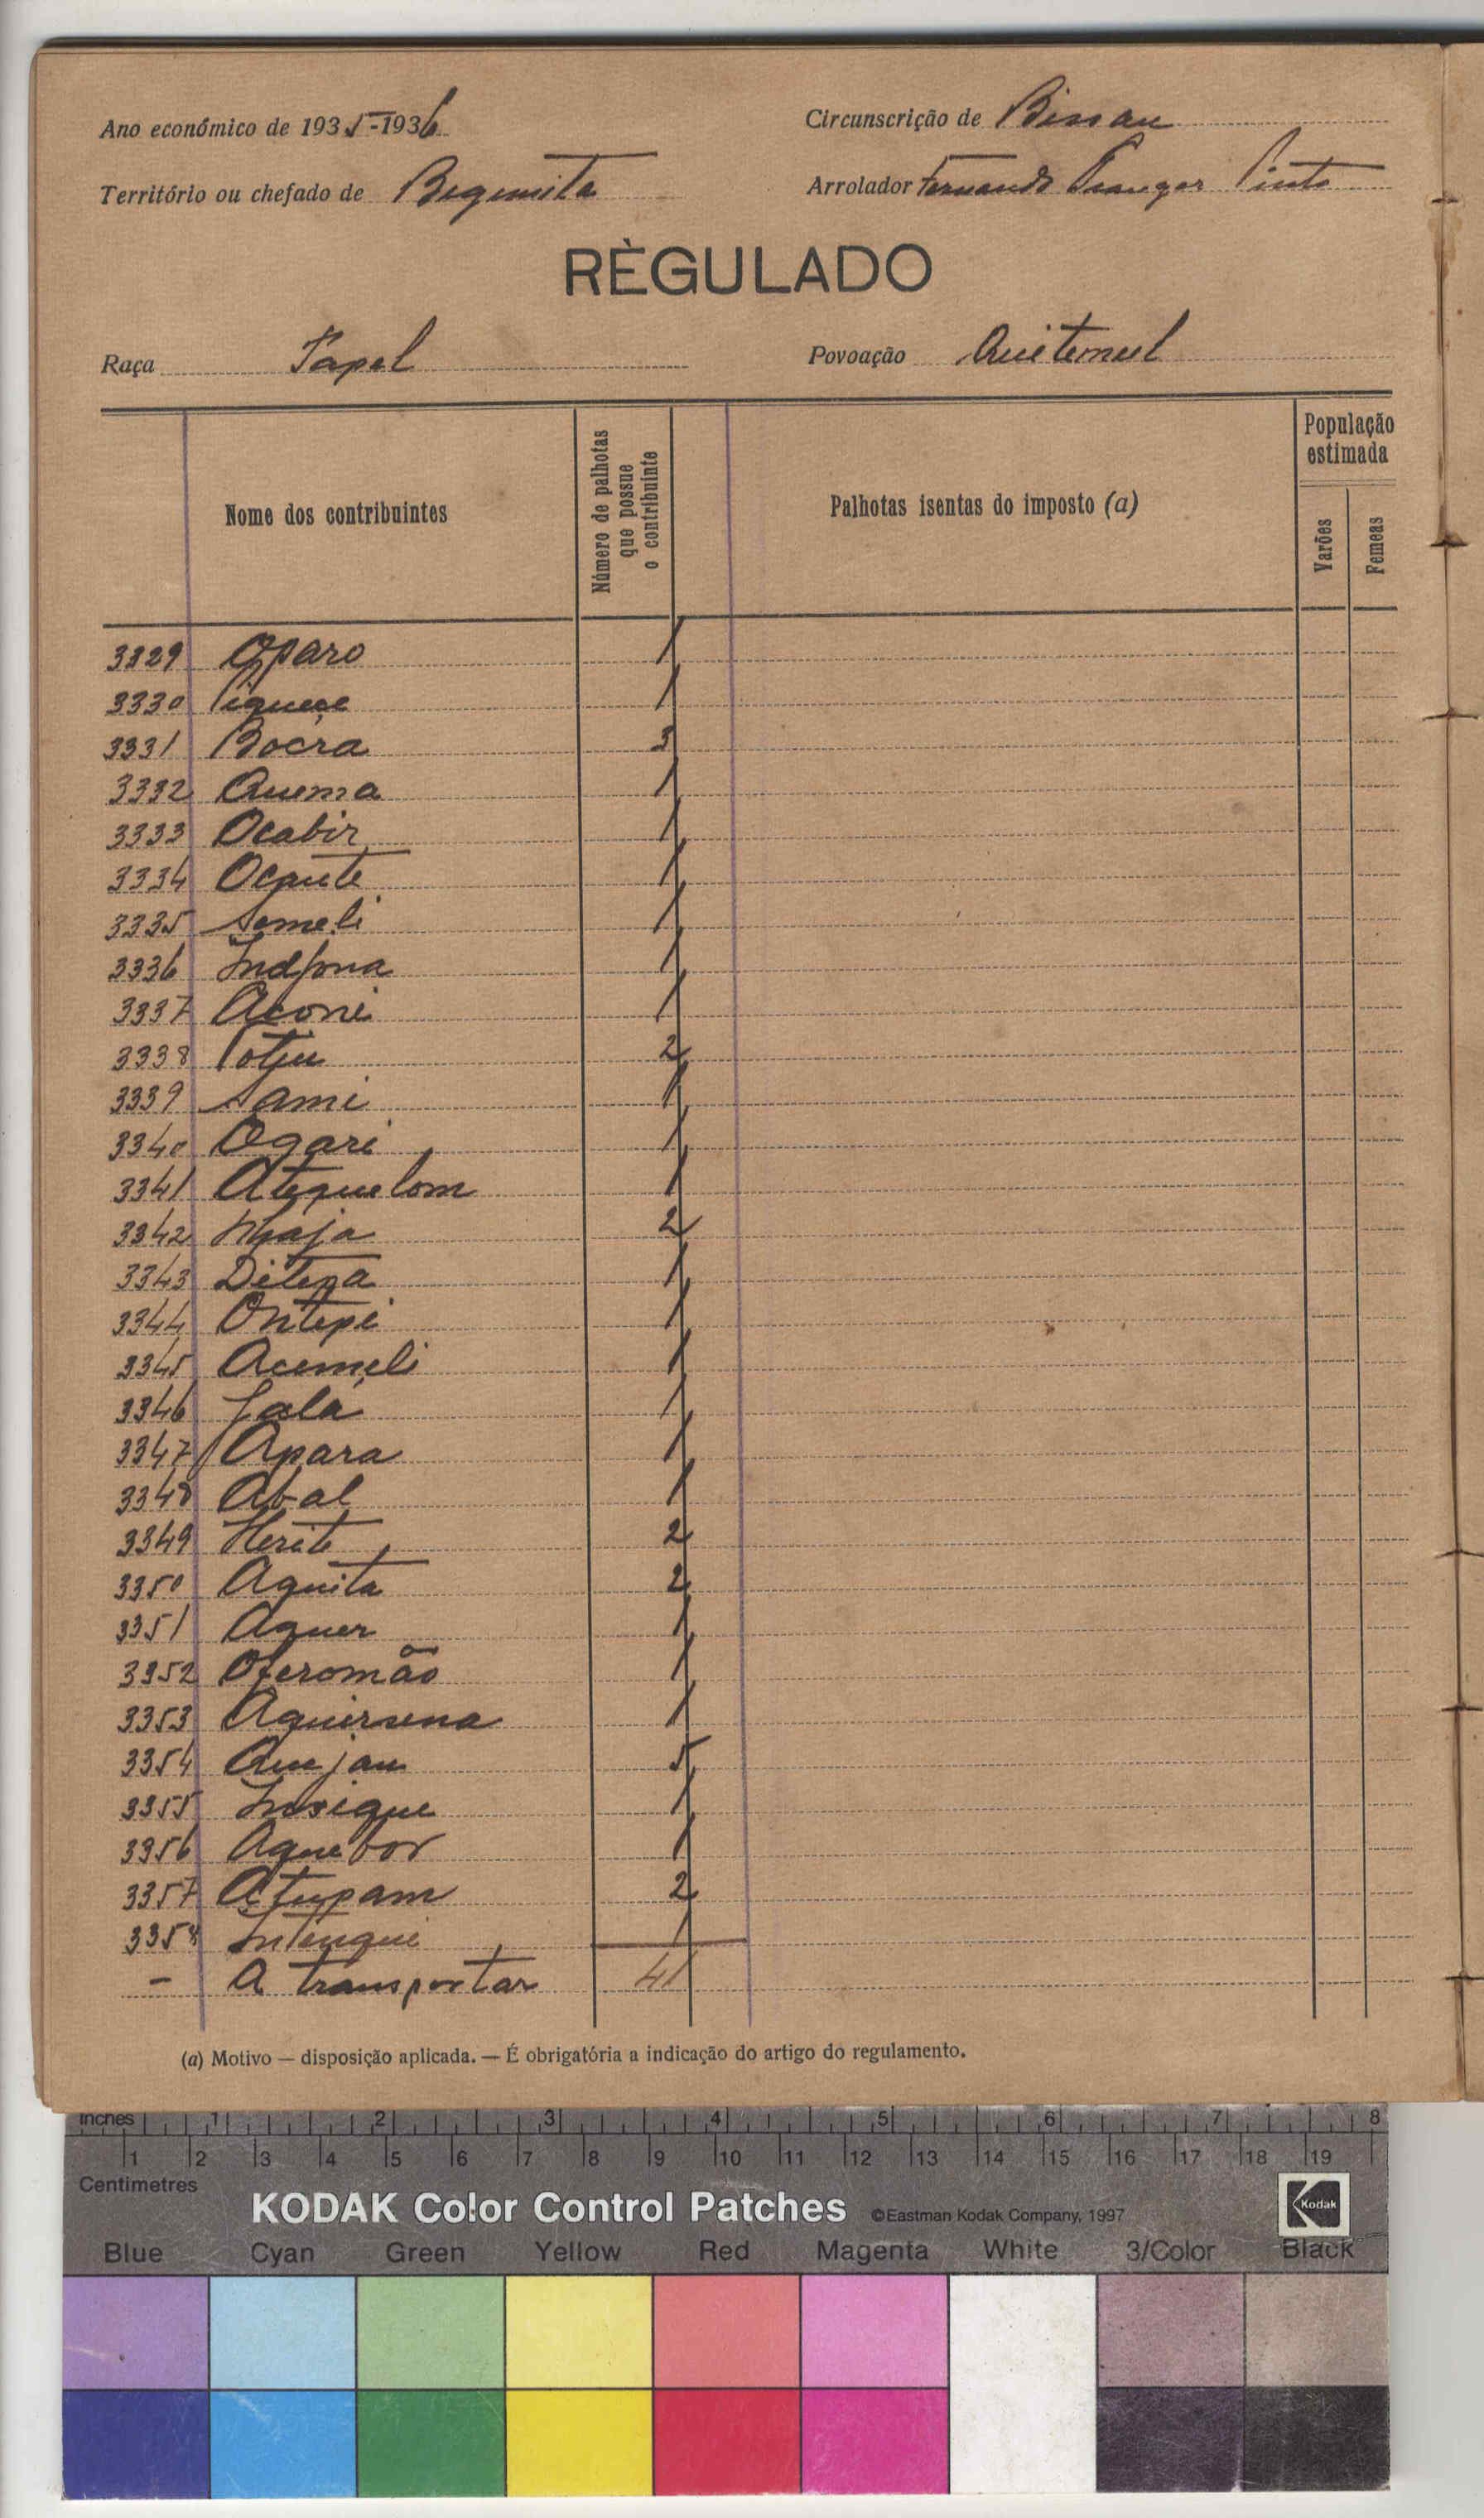 Ano económico de 1935-1936 Circunscrição de Bissau
Território ou chefado de Bigimita Arrolador Fernando Pinto
RÈGULADO
Raça Papel Povoação Quitemul
Nome dos contribuintes
Número de palhotas que possue o contribuinte
Palhotas isentas do imposto (a)
População estimada
Varões
Femeas
3329 Oparo 1
3330 Piquece 1
3331 Bocra 3
3332 Quema 1
3333 Ocabir 1
3334 Ocante 1
3335 Semeli 1
3336 Indfona 1
3337 Aconi 1
3338 Potju 2
3339 Sami 1
3340 Ogari 1
3341 Atequelom 1
3342 Nhaja 2
3343 Ditena 1
3344 Ontepi 1
3345 Acemeli 1
3346 Jalá 1
3347 Apara 1
3348 Abal 1
3349 Herite 2
3350 Aquita 2
3351 Aquer 1
3352 Oferomão 1
3353 Aquirsena 1
3354 Quejau 5
3355 Insique 1
3356 Aquebor 1
3357 Atupam 2
3358 Intengui 1
- A transportar 41
(a) Motivo — disposição aplicada. — É obrigatória a indicação do artigo do regulamento.
Inches 1 2 3 4 5 6 7 8
1 2 3 4 5 6 7 8 9 10 11 12 13 14 15 16 17 18 19
Centimetres
KODAK Color Control Patches ©Eastman Kodak Company, 1997 Kodak
Blue Cyan Green Yellow Red Magenta White 3/Color Black